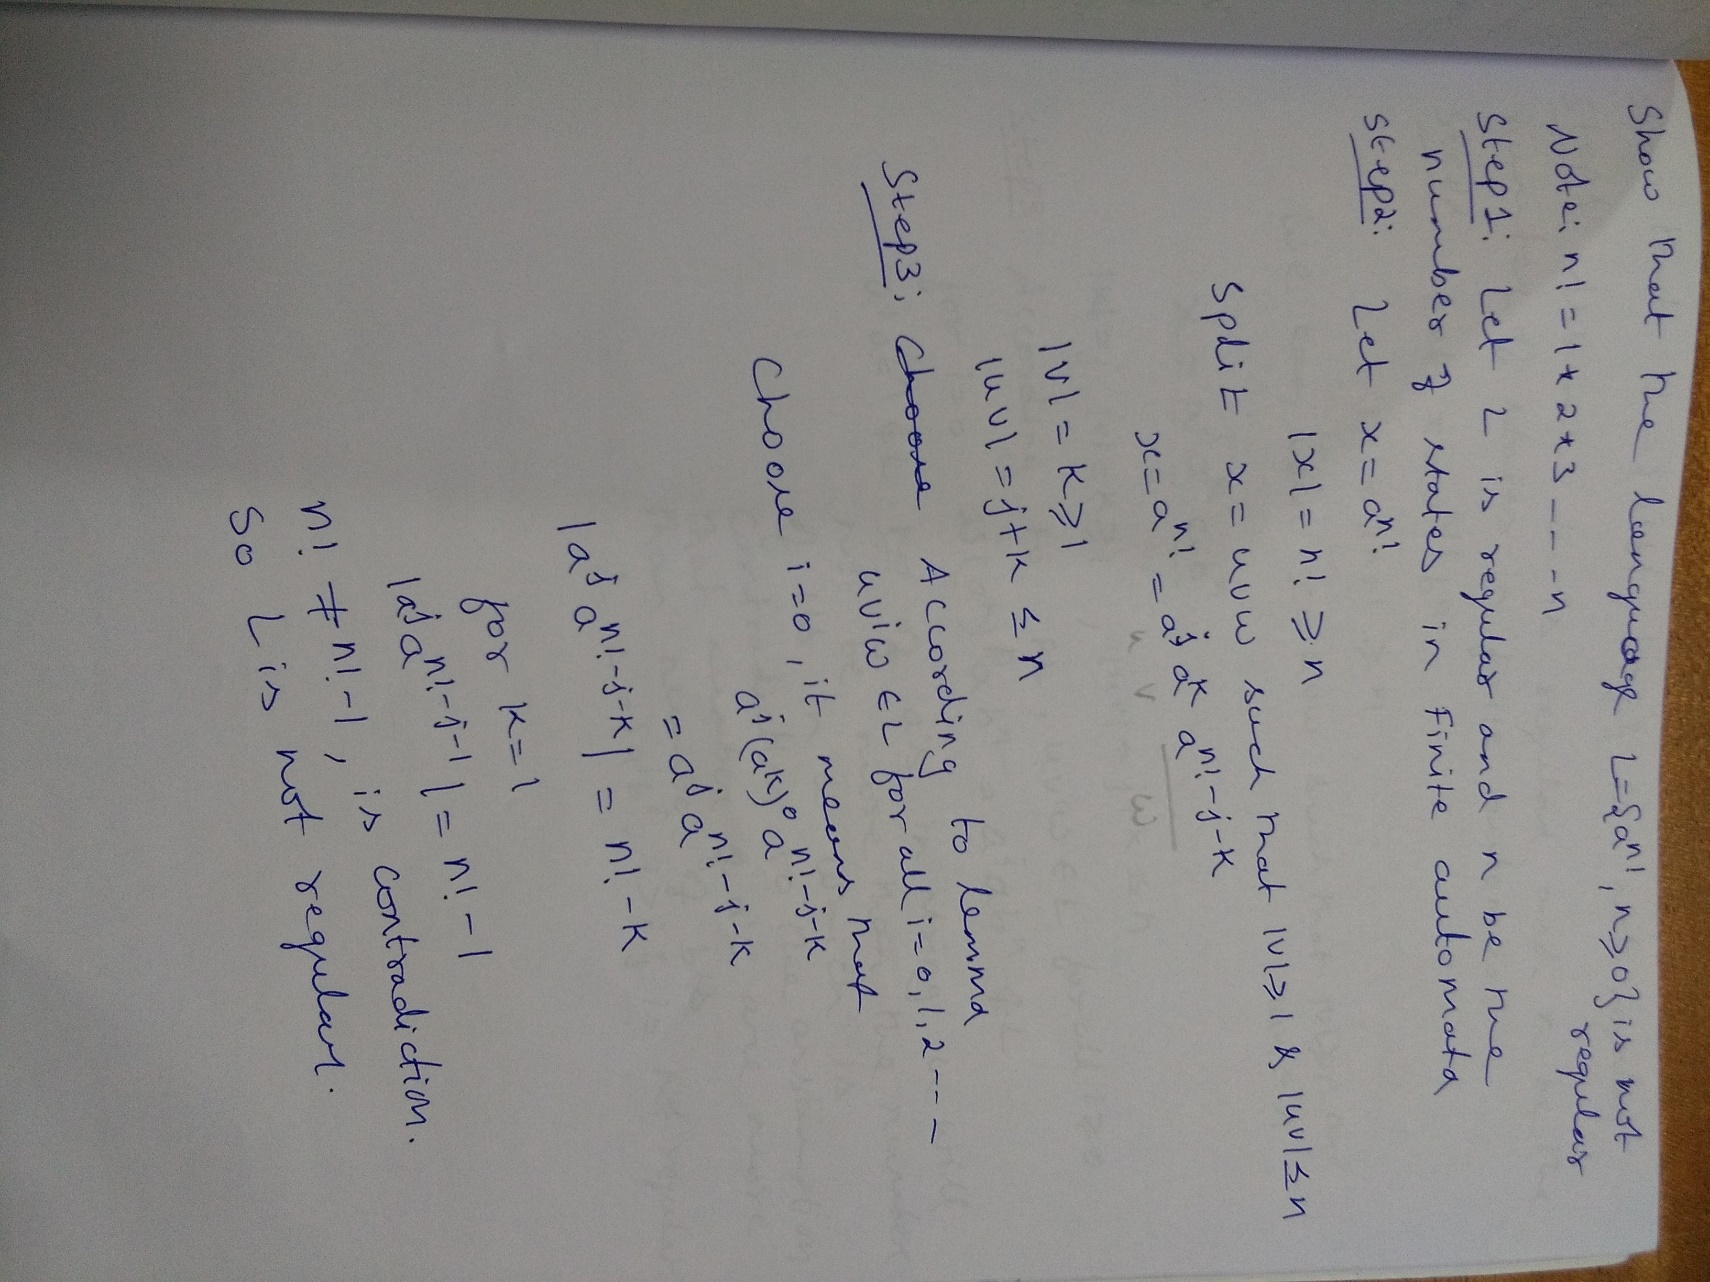 Show that the language L={a^n!, n≥0} is not
regular
Note: n! = 1*2*3----n
Step1: Let L is regular and n be the
number of states in Finite automata
Step2: Let x = a^n!
|x| = n! ≥ n
Split x = uvw such that |v|≥1 & |uv|≤n
x = a^n! = a^j a^k a^n!-j-k
u v w
|v| = k≥1
|uv| = j+k ≤ n
Step3: Choose According to lemma
uv^iw ∈ L for all i=0,1,2---
Choose i=0, it means that
a^j(a^k)^0 a^n!-j-k
= a^j a^n!-j-k
|a^j a^n!-j-k| = n!-k
for k=1
|a^j a^n!-j-1| = n!-1
n! ≠ n!-1, is contradiction.
So L is not regular.